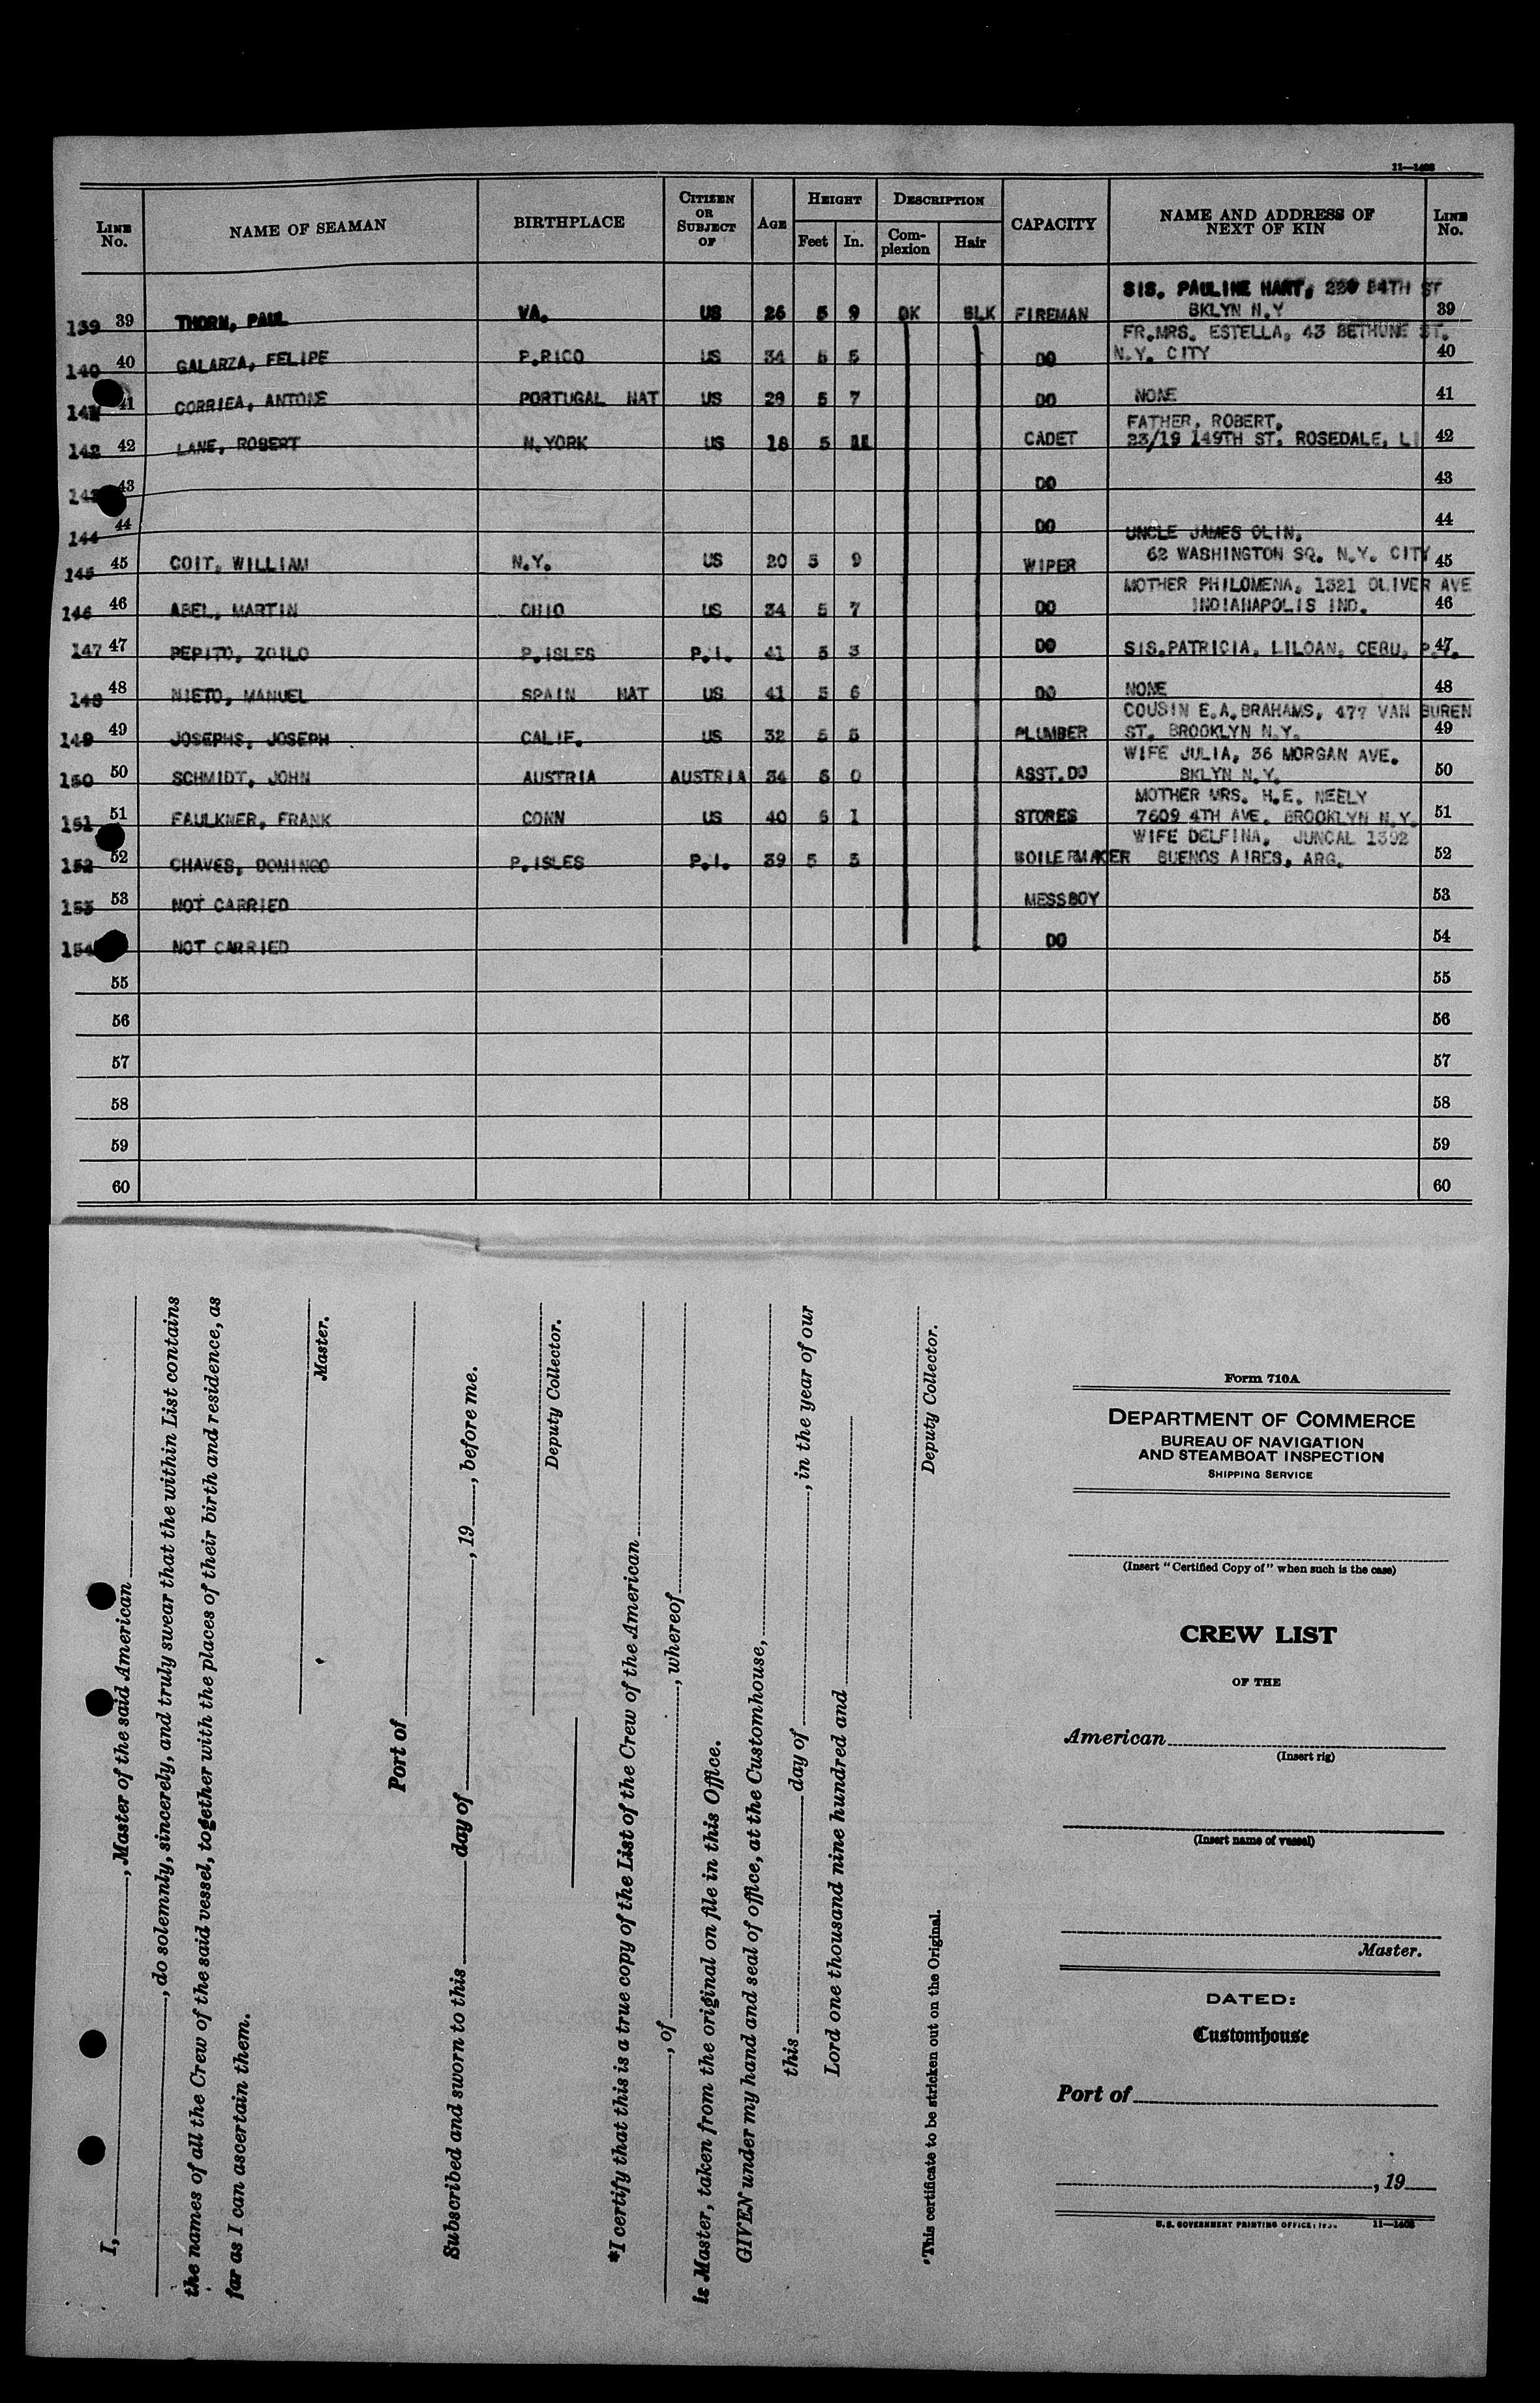 11—1408
LINE No. NAME OF SEAMAN BIRTHPLACE CITIZEN OR SUBJECT OF AGE HEIGHT Feet In. DESCRIPTION Complexion Hair CAPACITY NAME AND ADDRESS OF NEXT OF KIN LINE No.
SIS. PAULINE HART, 54TH ST
139 39 THORN, PAUL VA. US 26 5 9 DK BLK FIREMAN BKLYN N.Y 39
FR.MRS. ESTELLA, 43 BETHUNE ST.
140 40 GALARZA, FELIPE P.RICO US 34 5 5 DO N.Y. CITY 40
141 41 CORRIEA, ANTONE PORTUGAL NAT US 29 5 7 DO NONE 41
FATHER, ROBERT,
142 42 LANE, ROBERT N.YORK US 18 5 11 CADET 23/19 149TH ST. ROSEDALE, LI 42
143 43 DO 43
144 44 DO 44
UNCLE JAMES OLIN,
145 45 COIT, WILLIAM N.Y. US 20 5 9 WIPER 62 WASHINGTON SQ. N.Y. CITY 45
MOTHER PHILOMENA, 1321 OLIVER AVE
146 46 ABEL, MARTIN OHIO US 34 5 7 DO INDIANAPOLIS IND. 46
147 47 PEPITO, ZOILO P.ISLES P.I. 41 5 3 DO SIS.PATRICIA, LILOAN, CEBU, P.I. 47
148 48 NIETO, MANUEL SPAIN NAT US 41 5 6 DO NONE 48
COUSIN E.A.BRAHAMS, 477 VAN BUREN
149 49 JOSEPHS, JOSEPH CALIF. US 32 5 5 PLUMBER ST. BROOKLYN N.Y. 49
WIFE JULIA, 36 MORGAN AVE.
150 50 SCHMIDT, JOHN AUSTRIA AUSTRIA 34 6 0 ASST.DO BKLYN N.Y. 50
MOTHER MRS. H.E. NEELY
151 51 FAULKNER, FRANK CONN US 40 6 1 STORES 7609 4TH AVE. BROOKLYN N.Y. 51
WIFE DELFINA, JUNCAL 1392
152 52 CHAVES, DOMINGO P.ISLES P.I. 39 5 5 BOILERMAKER BUENOS AIRES, ARG. 52
153 53 NOT CARRIED MESSBOY 53
154 NOT CARRIED DO 54
55 55
56 56
57 57
58 58
59 59
60 60
I, , Master of the said American
, do solemnly, sincerely, and truly swear that the within List contains
the names of all the Crew of the said vessel, together with the places of their birth and residence, as
far as I can ascertain them.
Master.
Port of
Subscribed and sworn to this day of , 19 , before me.
Deputy Collector.
*I certify that this is a true copy of the List of the Crew of the American
, of , whereof
is Master, taken from the original on file in this Office.
GIVEN under my hand and seal of office, at the Customhouse,
this day of , in the year of our
Lord one thousand nine hundred and
Deputy Collector.
*This certificate to be stricken out on the Original.
Form 710A
DEPARTMENT OF COMMERCE
BUREAU OF NAVIGATION
AND STEAMBOAT INSPECTION
SHIPPING SERVICE
(Insert "Certified Copy of" when such is the case)
CREW LIST
OF THE
American
(Insert rig)
(Insert name of vessel)
Master.
DATED:
Customhouse
Port of
, 19
U.S. GOVERNMENT PRINTING OFFICE: 11—1408